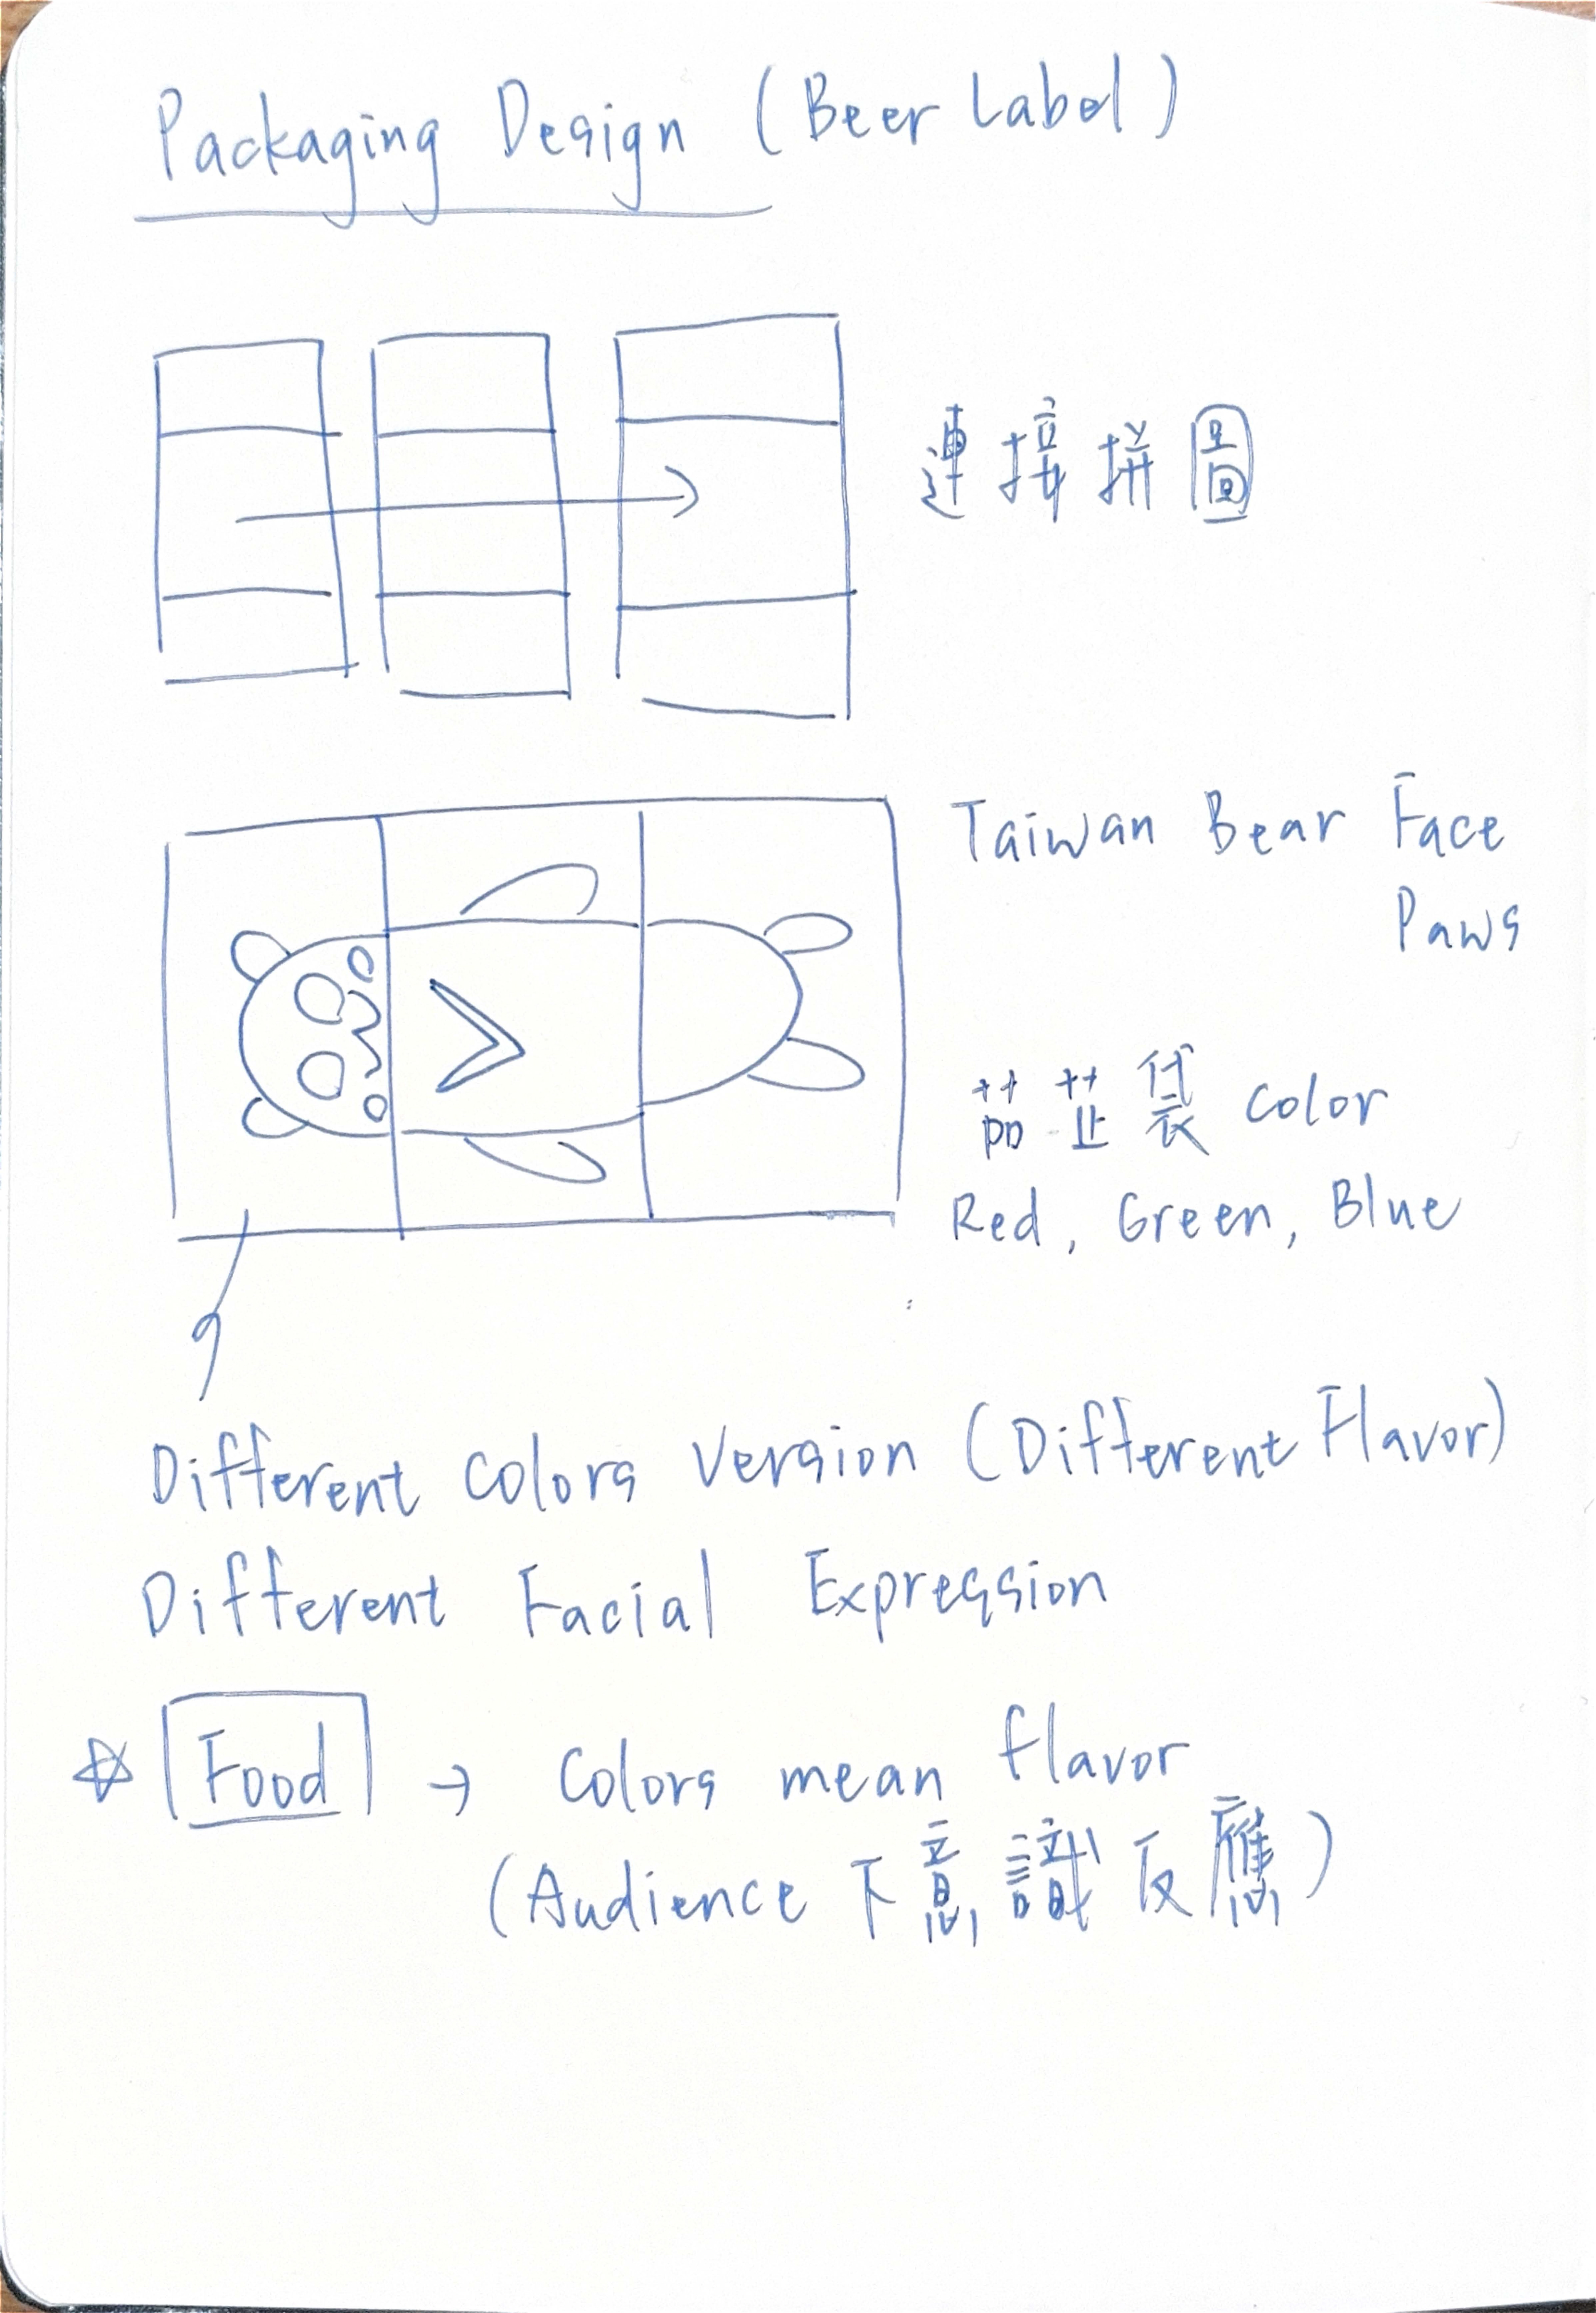 Packaging Design (Beer Label)
連接拼圖
Taiwan Bear Face
Paws
茄芷袋 color
Red, Green, Blue
Different colors version (Different Flavor)
Different Facial Expression
☆ Food → Colors mean flavor
(Audience 下意識反應)